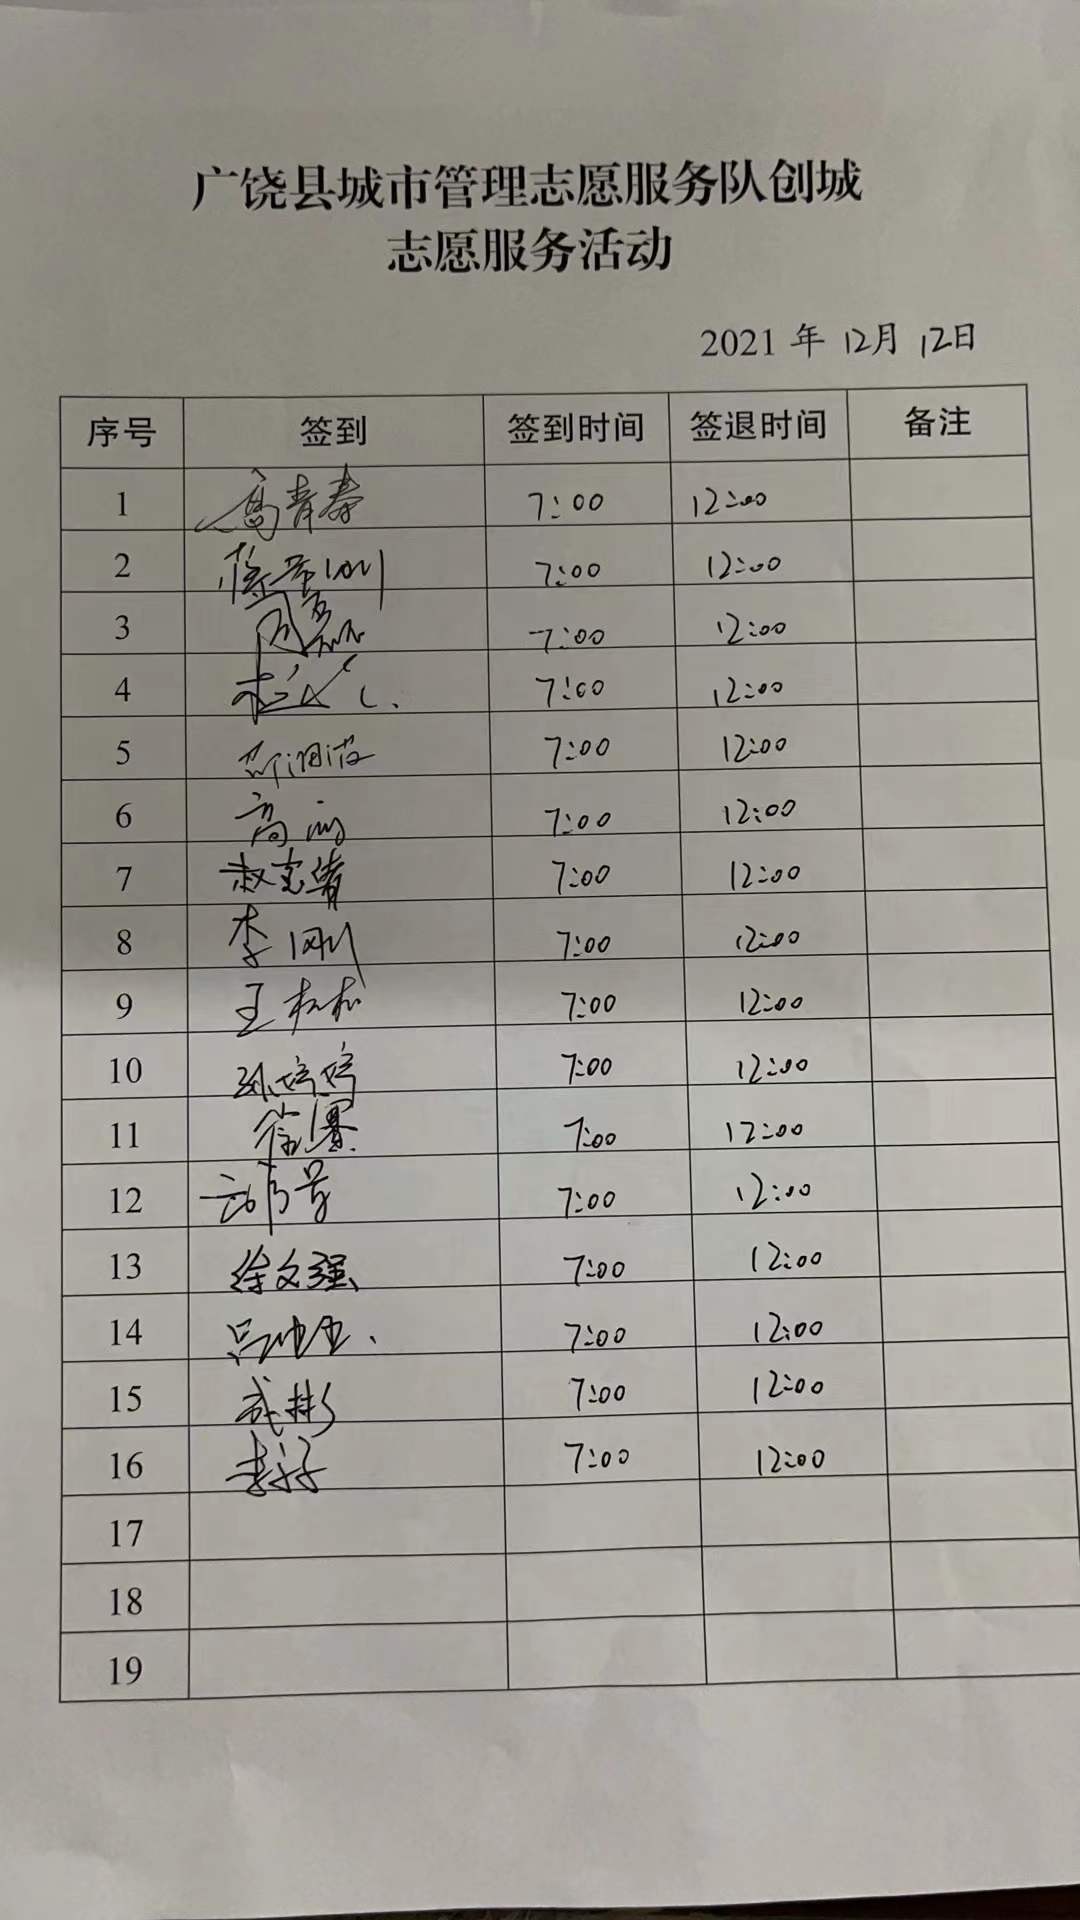 广饶县城市管理志愿服务队创城
志愿服务活动
2021 年 12月 12日
序号 签到 签到时间 签退时间 备注
1 高青春 7:00 12:00
2 7:00 12:00
3 周磊 7:00 12:00
4 7:00 12:00
5 7:00 12:00
6 高 7:00 12:00
7 赵 7:00 12:00
8 李刚 7:00 12:00
9 王松松 7:00 12:00
10 孙婷婷 7:00 12:00
11 7:00 12:00
12 7:00 12:00
13 徐文强 7:00 12:00
14 吕 7:00 12:00
15 成彬 7:00 12:00
16 7:00 12:00
17
18
19